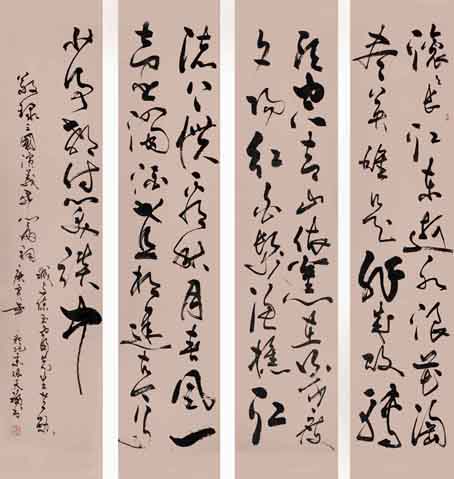 滚々长江东逝水浪花淘
尽英雄是非成败转
头空青山依旧在几度
夕阳红白发渔樵江
渚上惯看秋月春风一
壶浊酒喜相逢古今多
少事都付笑谈中
敬録三國演義